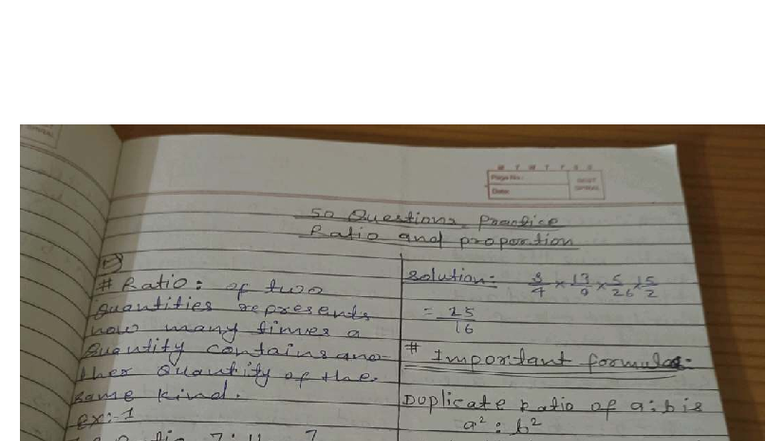 M T W T F S S
Page No.:
Date:
50 Questions Practice
Ratio and proportion
# Ratio: of two
quantities represents
how many times a
quantity contains ano-
ther quantity of the
same kind.
ex:-1
solution:- 3/4 × 13/9 × 5/26 × 15/2
= 25/16
# Important formula:-
Duplicate Ratio of a:b is
a² : b²